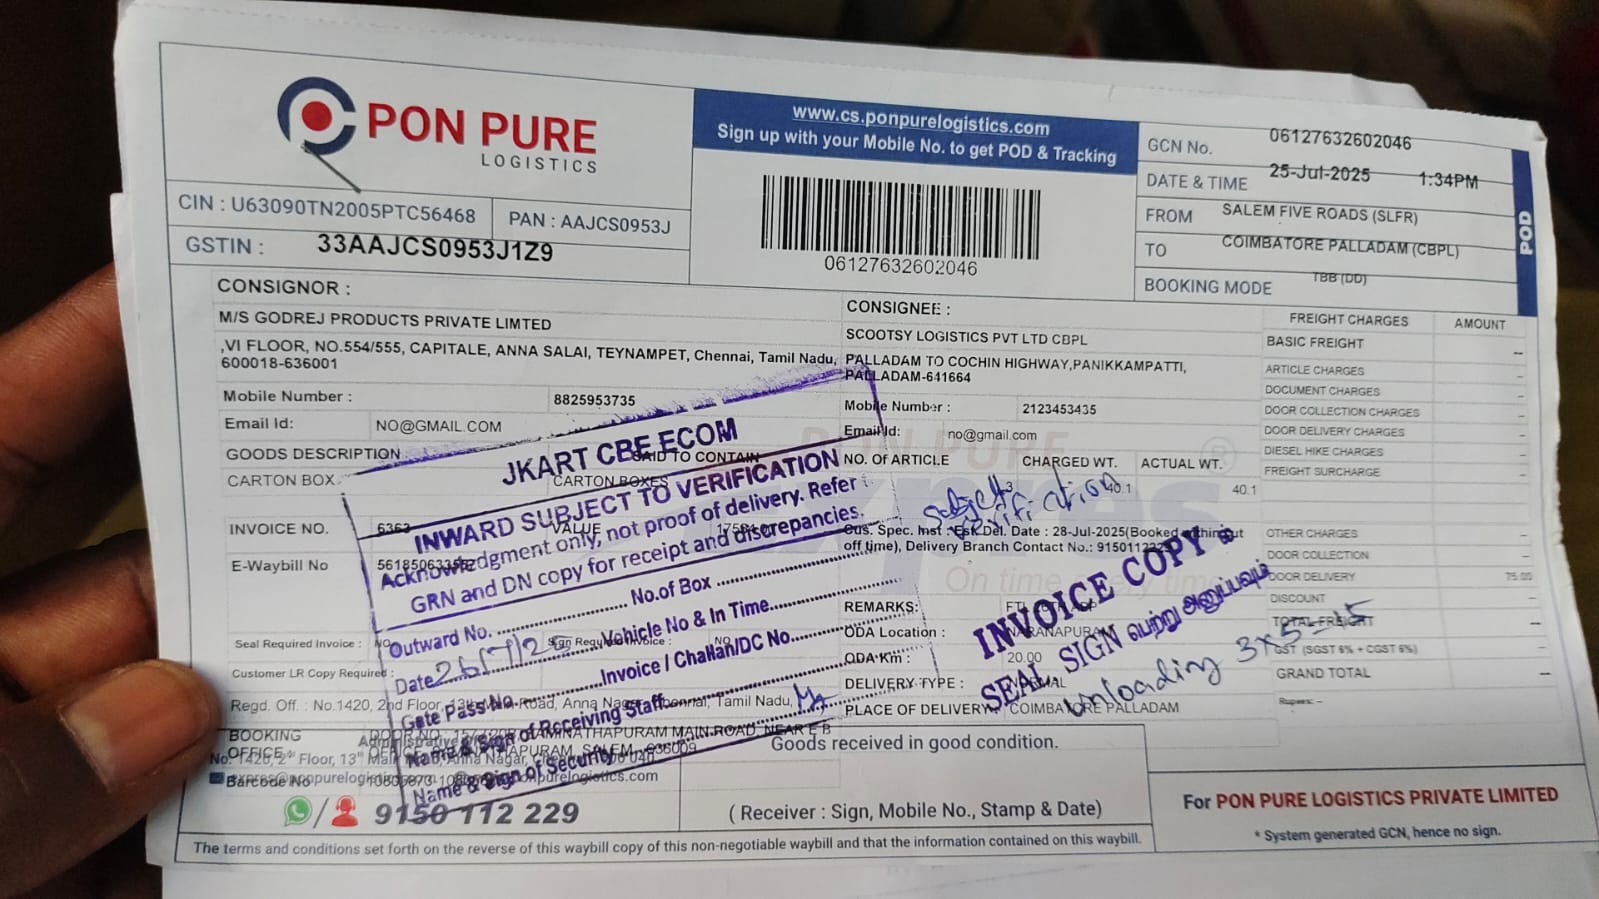 PON PURE
LOGISTICS
CIN : U63090TN2005PTC56468
PAN : AAJCS0953J
GSTIN : 33AAJCS0953J1Z9
www.cs.ponpurelogistics.com
Sign up with your Mobile No. to get POD & Tracking
06127632602046
GCN No. 06127632602046
DATE & TIME 25-Jul-2025 1:34PM
FROM SALEM FIVE ROADS (SLFR)
TO COIMBATORE PALLADAM (CBPL)
BOOKING MODE TBB (DD)
POD
CONSIGNOR :
M/S GODREJ PRODUCTS PRIVATE LIMTED
,VI FLOOR, NO.554/555, CAPITALE, ANNA SALAI, TEYNAMPET, Chennai, Tamil Nadu,
600018-636001
Mobile Number : 8825953735
Email Id: NO@GMAIL.COM
GOODS DESCRIPTION SAID TO CONTAIN
CARTON BOX. CARTON BOXES
INVOICE NO. 6363 VALUE
E-Waybill No
Seal Required Invoice : NO Sign Required Invoice : NO
Customer LR Copy Required :
CONSIGNEE :
SCOOTSY LOGISTICS PVT LTD CBPL
PALLADAM TO COCHIN HIGHWAY,PANIKKAMPATTI,
PALLADAM-641664
Mobile Number : 2123453435
Email Id: no@gmail.com
NO. OF ARTICLE CHARGED WT. ACTUAL WT.
3 40.1 40.1
Cus. Spec. Inst : Est.Del. Date : 28-Jul-2025(Booked without
off time), Delivery Branch Contact No.:
REMARKS:
ODA Location :
ODA Km : 20.00
DELIVERY TYPE : NORMAL
PLACE OF DELIVERY: COIMBATORE PALLADAM
FREIGHT CHARGES AMOUNT
BASIC FREIGHT --
ARTICLE CHARGES
DOCUMENT CHARGES
DOOR COLLECTION CHARGES
DOOR DELIVERY CHARGES
DIESEL HIKE CHARGES
FREIGHT SURCHARGE
OTHER CHARGES
DOOR COLLECTION
DOOR DELIVERY 75.00
DISCOUNT
TOTAL FREIGHT
GST (SGST 6% + CGST 6%)
GRAND TOTAL
Rupees: --
JKART CBE ECOM
INWARD SUBJECT TO VERIFICATION
Acknowledgment only, not proof of delivery. Refer
GRN and DN copy for receipt and discrepancies.
Outward No. No.of Box
Date 26/7/25 Vehicle No & In Time
Gate Pass No. Invoice / Challan/DC No.
Name & Sign of Receiving Staff
Name & Sign of Security
INVOICE COPY &
SEAL SIGN பெற்று அனுப்பவும்
unloading 3x5=15
Regd. Off. : No.1420, 2nd Floor, 13th Main Road, Anna Nagar, Chennai, Tamil Nadu,
BOOKING
OFFICE
Barcode No
Goods received in good condition.
9150 112 229
( Receiver : Sign, Mobile No., Stamp & Date)
For PON PURE LOGISTICS PRIVATE LIMITED
* System generated GCN, hence no sign.
The terms and conditions set forth on the reverse of this waybill copy of this non-negotiable waybill and that the information contained on this waybill.